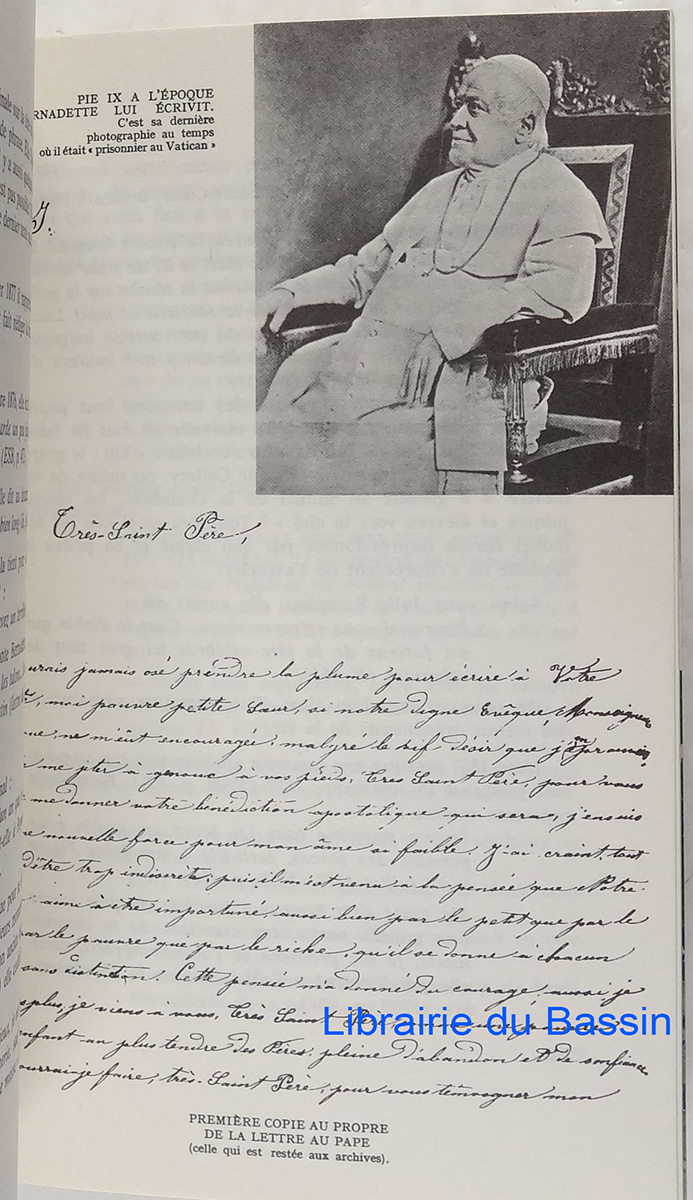 PIE IX A L'ÉPOQUE
RNADETTE LUI ÉCRIVIT.
C'est sa dernière
photographie au temps
où il était « prisonnier au Vatican »
J.
Très-Saint Père,
urais jamais osé prendre la plume pour écrire à Votre
, moi pauvre petite Sœur, si notre digne Evêque, Monseigneur
ue, ne m'eût encouragée, malgré le vif désir que j'en
me jeter à genoux à vos pieds, Très Saint Père, pour vous
me donner votre bénédiction apostolique qui sera, j'en suis
e nouvelle force pour mon âme si faible. J'ai craint, tout
d'être trop indiscrète; puis il m'est venu à la pensée que Notre-
aime à être importuné, aussi bien par le petit que par le
par le pauvre que par le riche, qu'il se donne à chacun
sans distinction. Cette pensée m'a donné du courage, aussi je
plus, je viens à vous, Très Saint Père
Librairie du Bassin
enfant au plus tendre des Pères, pleine d'abandon et de confiance
ourrai-je faire, très-Saint Père, pour vous témoigner mon
PREMIÈRE COPIE AU PROPRE
DE LA LETTRE AU PAPE
(celle qui est restée aux archives).